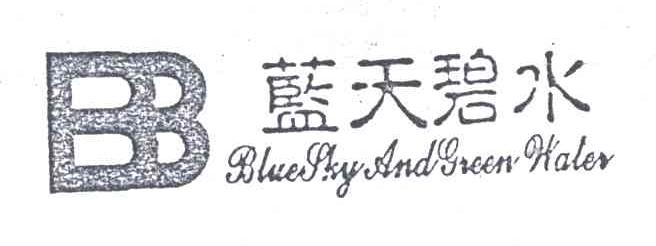 BB
藍天碧水
BlueSky And Green Water